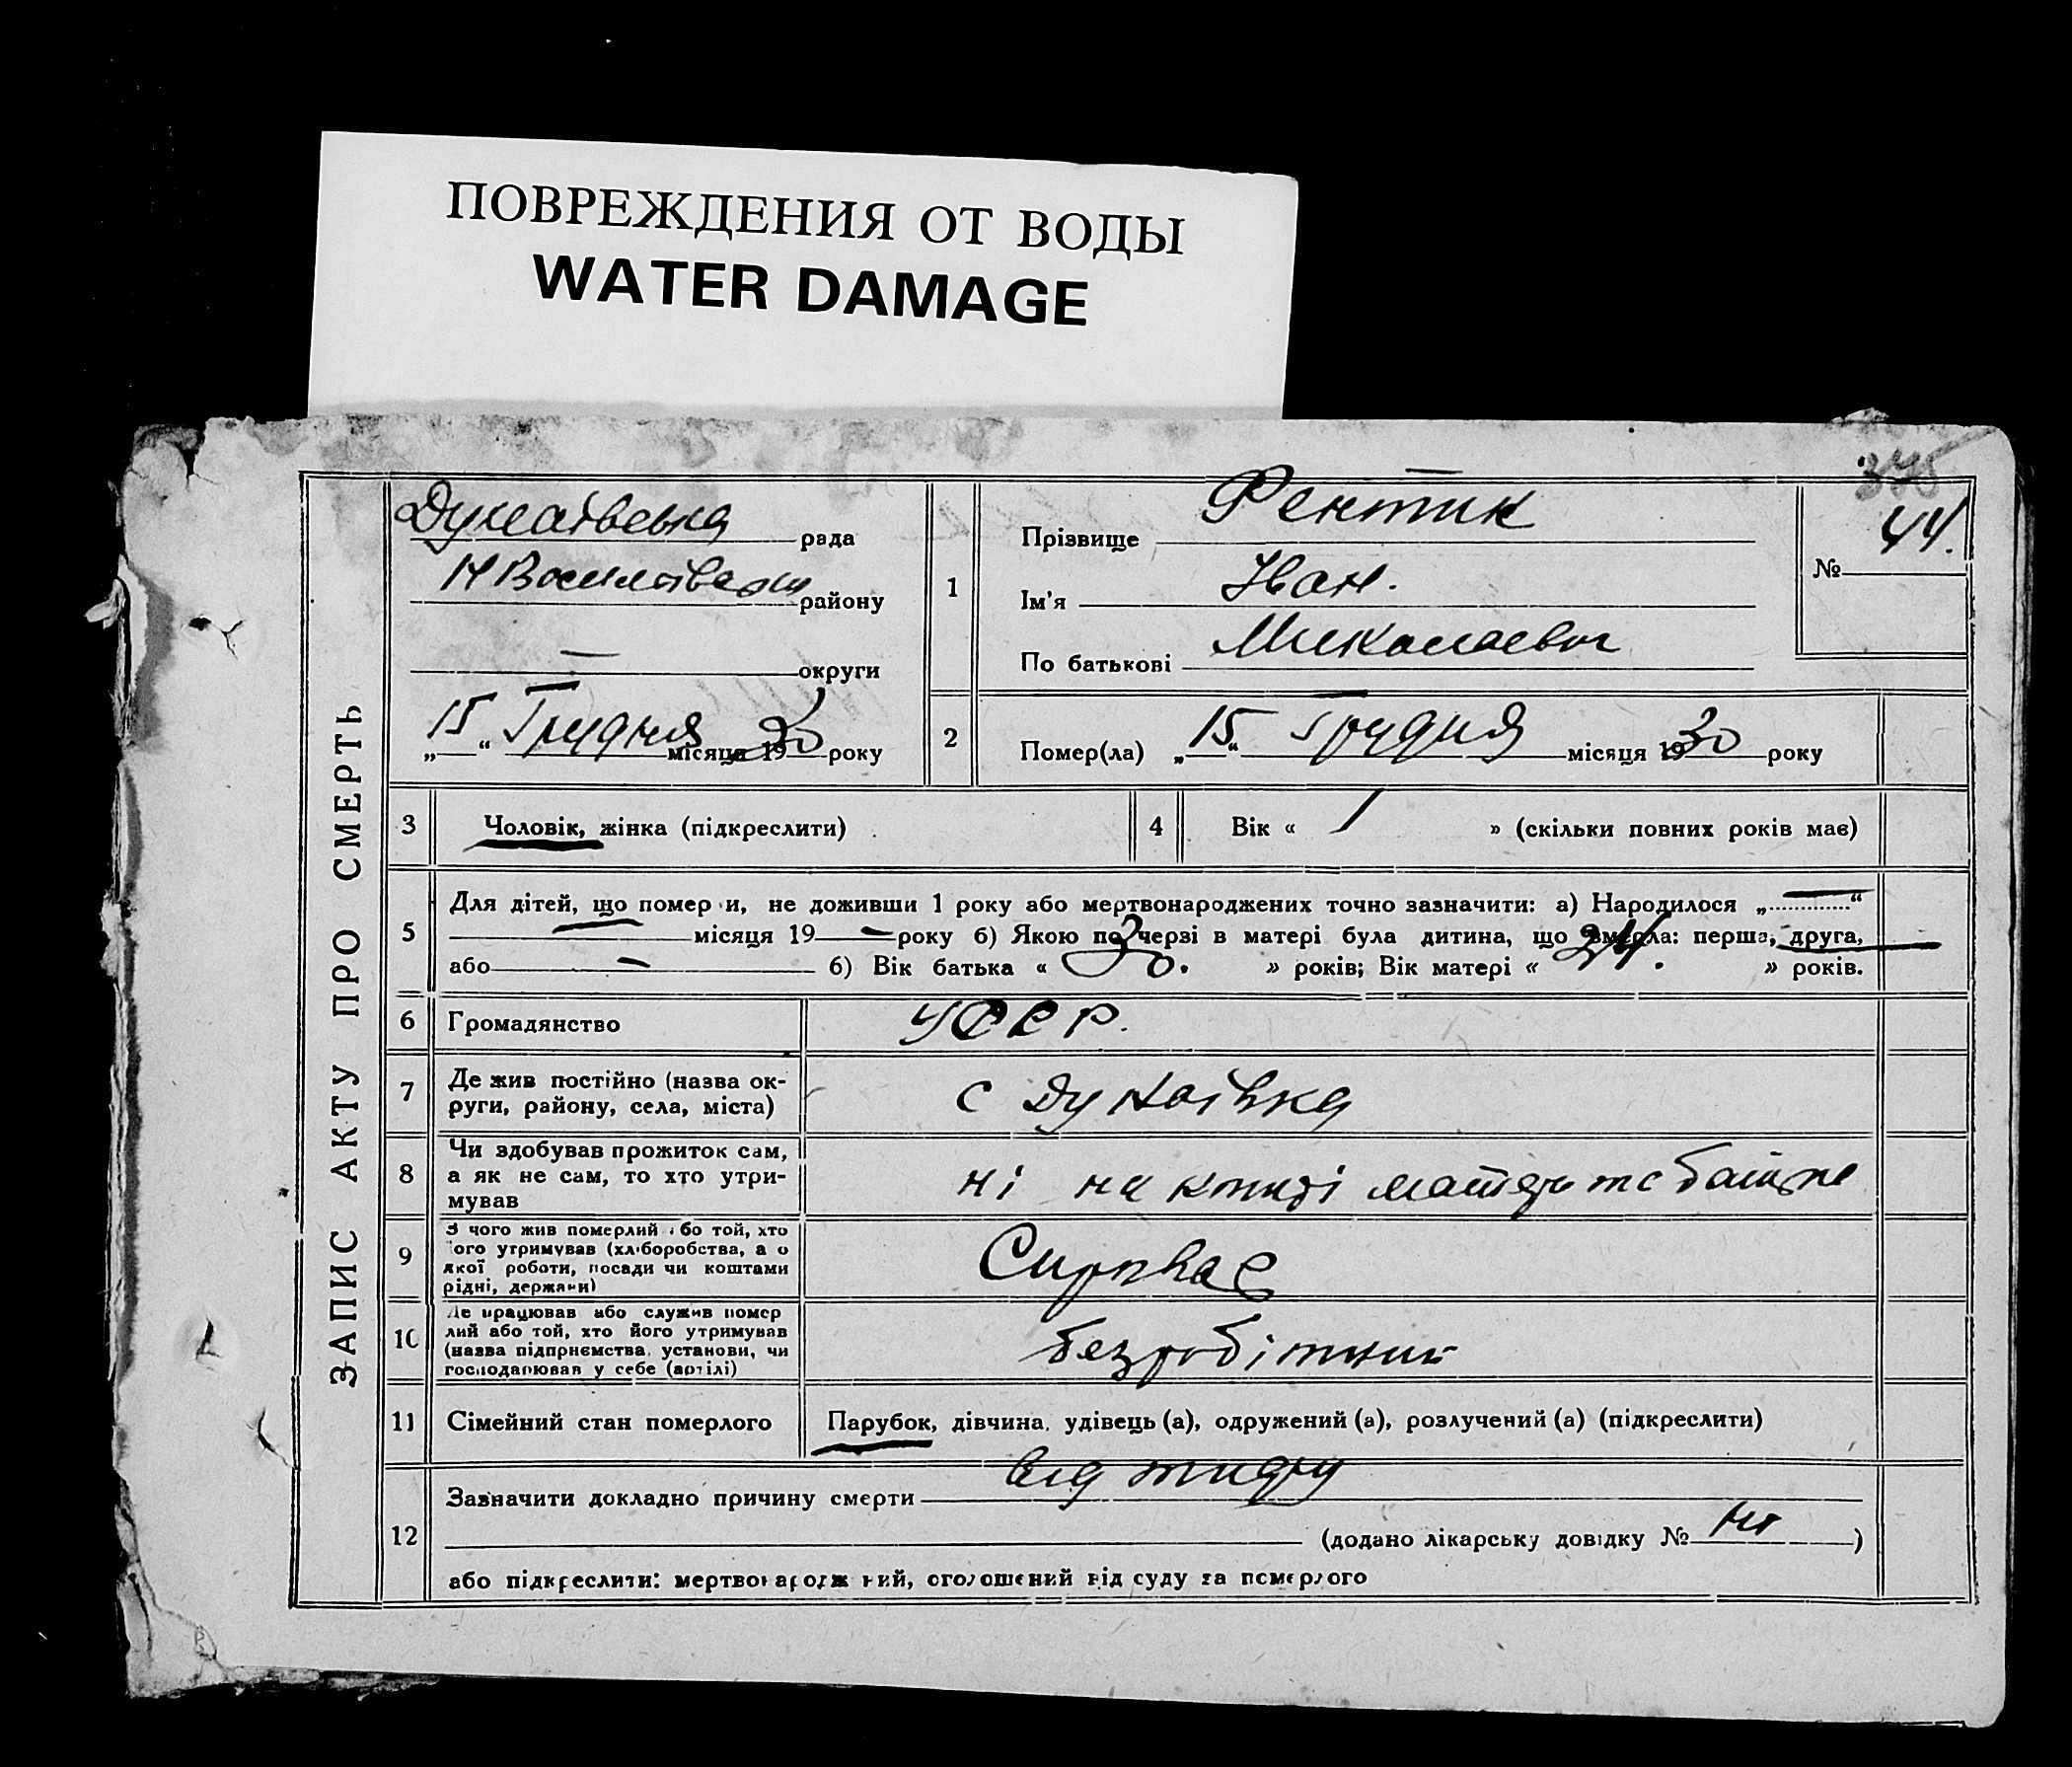 ПОВРЕЖДЕНИЯ ОТ ВОДЫ
WATER DAMAGE
375
ЗАПИС АКТУ ПРО СМЕРТЬ
Дунаівська рада
району
— округи
„15“ Грудня місяця 1930 року
1
Прізвище Фентик
Ім'я Іван.
По батькові Миколаевич
№ 44.
2
Помер(ла) „15“ Грудня місяця 1930 року
3 Чоловік, жінка (підкреслити)
4 Вік « 1 » (скільки повних років має)
5
Для дітей, що померли, не доживши 1 року або мертвонароджених точно зазначити: а) Народилося „—“
— місяця 19— року б) Якою по черзі в матері була дитина, що вмерла: перша, друга,
або — б) Вік батька « 30. » років; Вік матері « 24. » років.
6 Громадянство УССР.
7 Де жив постійно (назва ок-
руги, району, села, міста)
с Дунаівка
8 Чи здобував прожиток сам,
а як не сам, то хто утри-
мував
ні на
9 З чого жив померлий або той, хто
його утримував (хліборобства, а о
якої роботи, посади чи коштами
рідні, держави)
10 Де працював або служив помер
лий або той, хто його утримував
(назва підприємства, установи, чи
господарював у себе (артілі)
безробітний
11 Сімейний стан померлого Парубок, дівчина, удівець (а), одружений (а), розлучений (а) (підкреслити)
12
Зазначити докладно причину смерти від
(додано лікарську довідку № ні )
або підкреслити: мертвонароджений, оголошений від суду за померлого